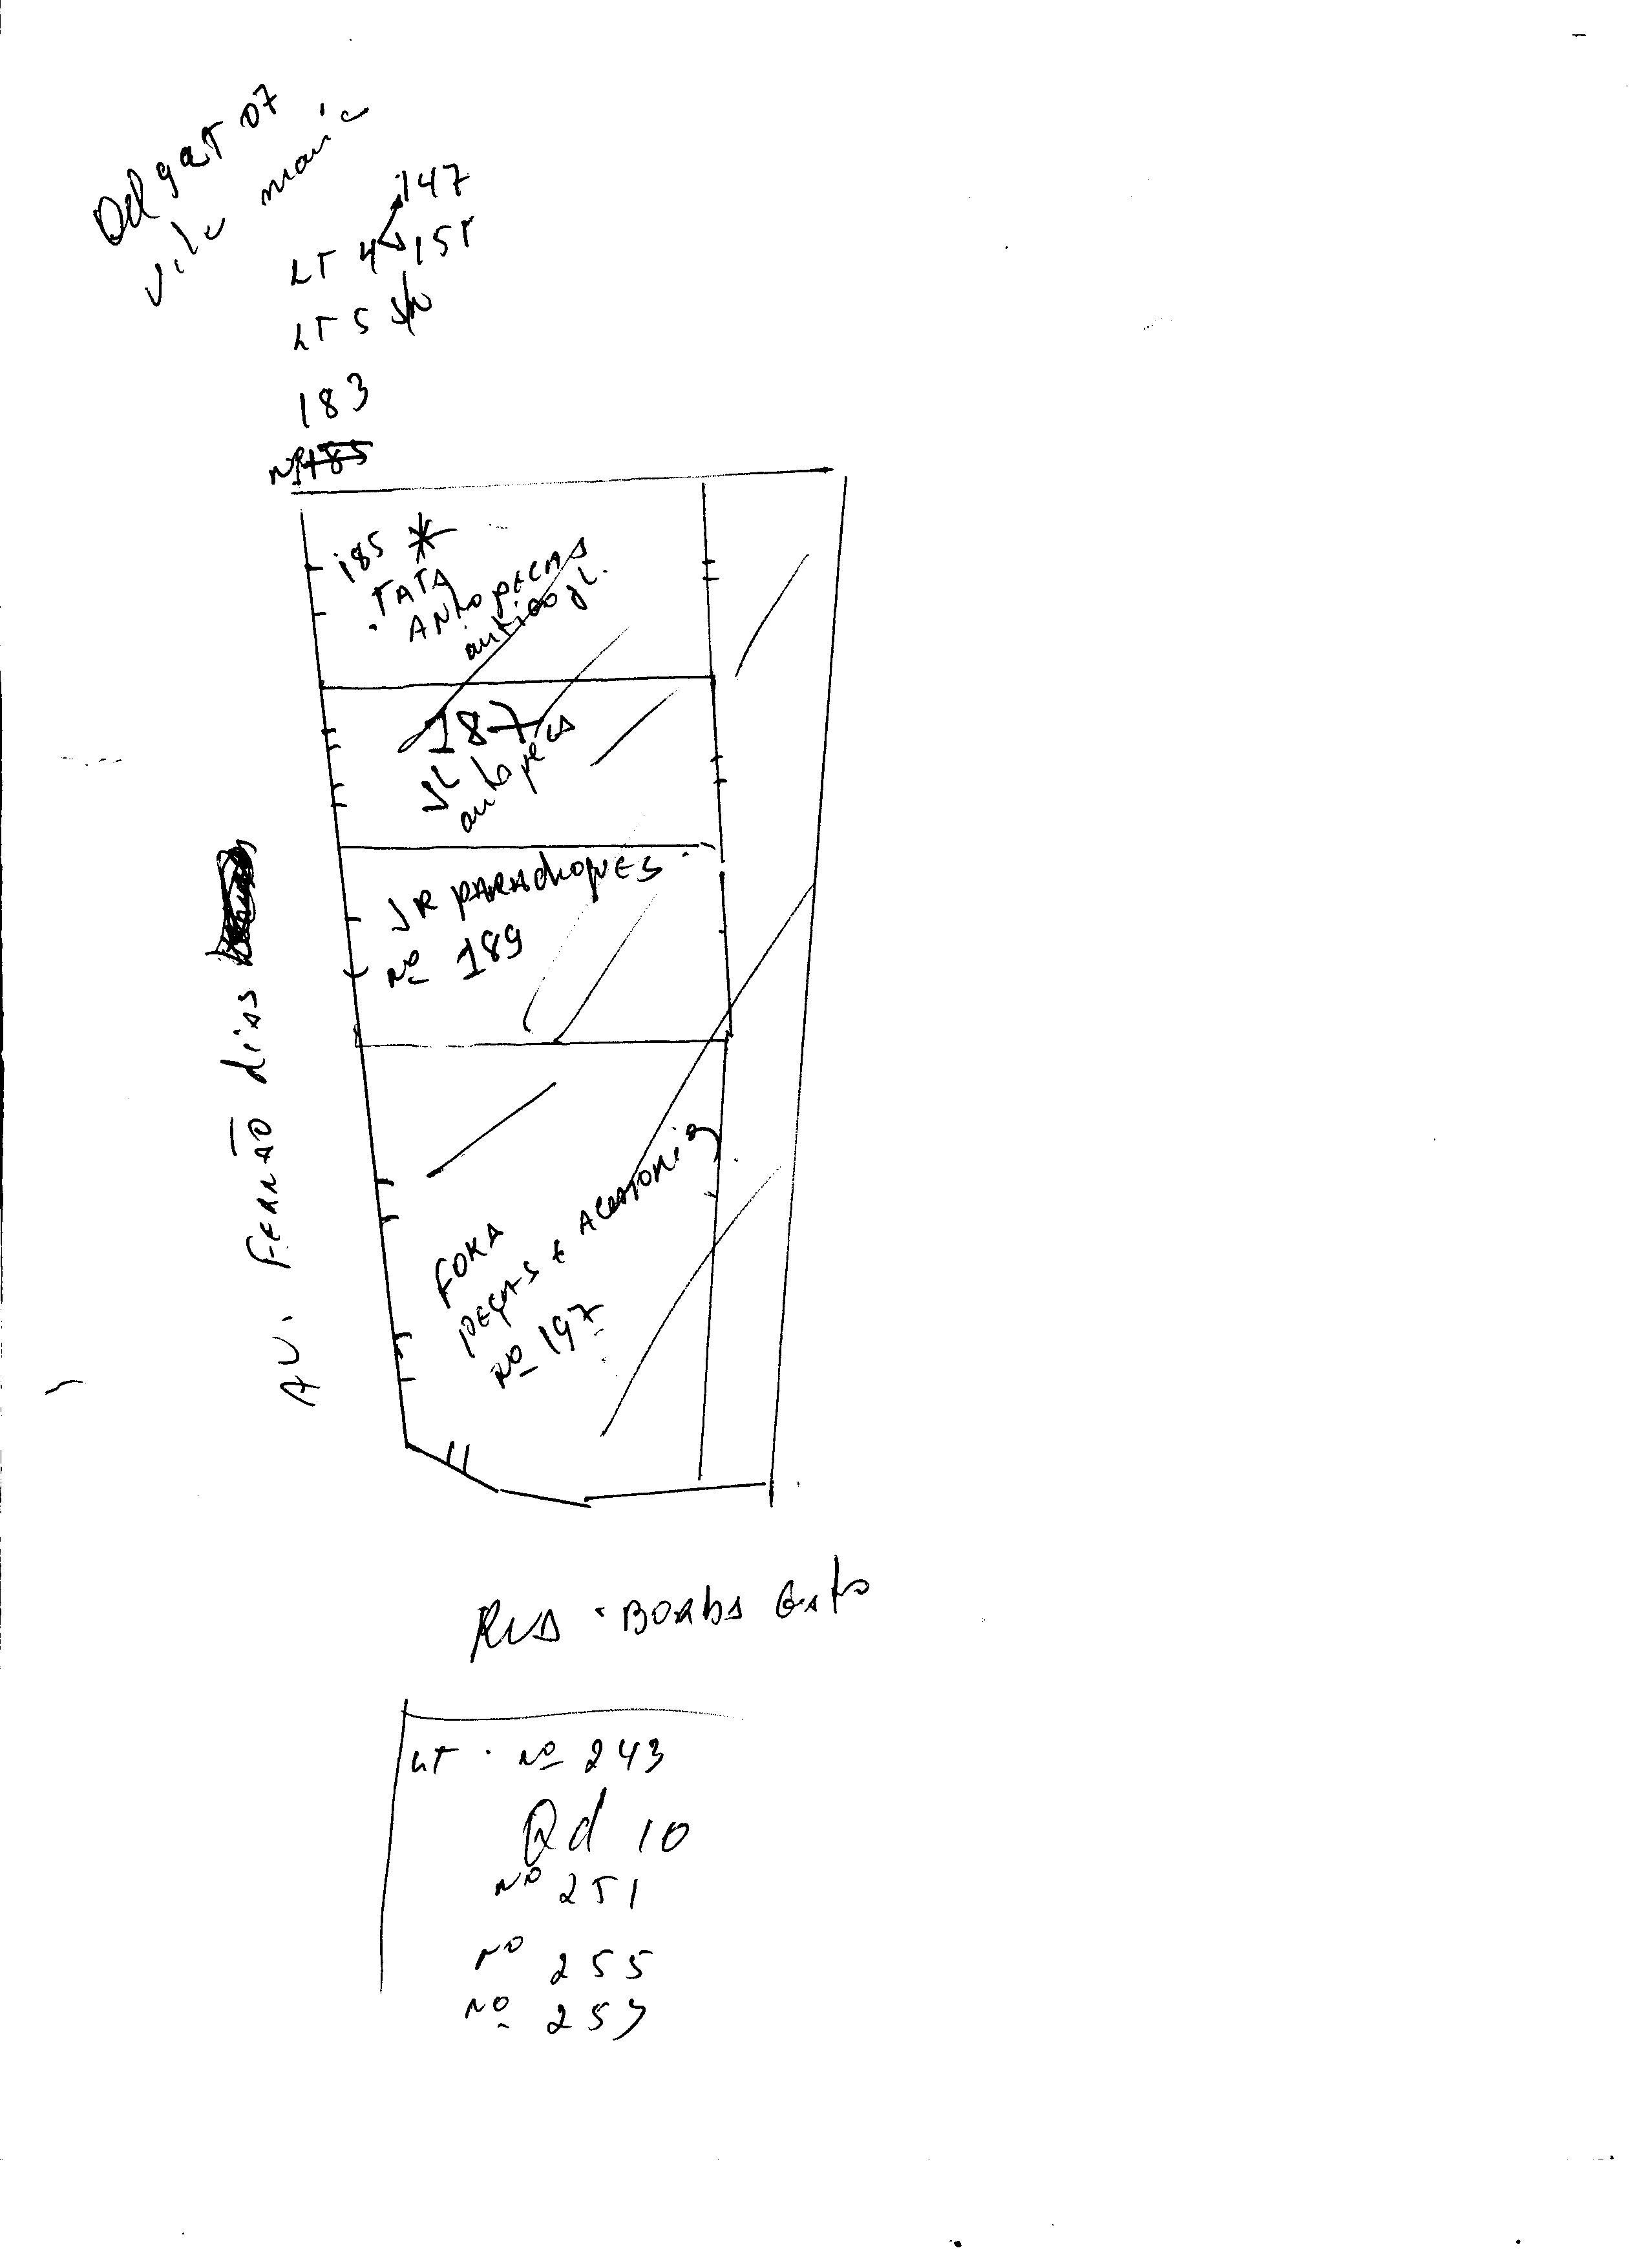 Qd 9 LT 07
vila maria
147
LT 4 151
LT 5 S/N
183
Nº 185
185 *
TATA
AUTOPECAS
antigo JL.
187
JL
autopecas
JR PARAchoques
Nº 189
FOKA
PEÇAS E
Nº 197
AV. FERNÃO diAS
RUA BORBA GATO
LT . Nº 243
Qd 10
Nº 251
Nº 255
Nº 257